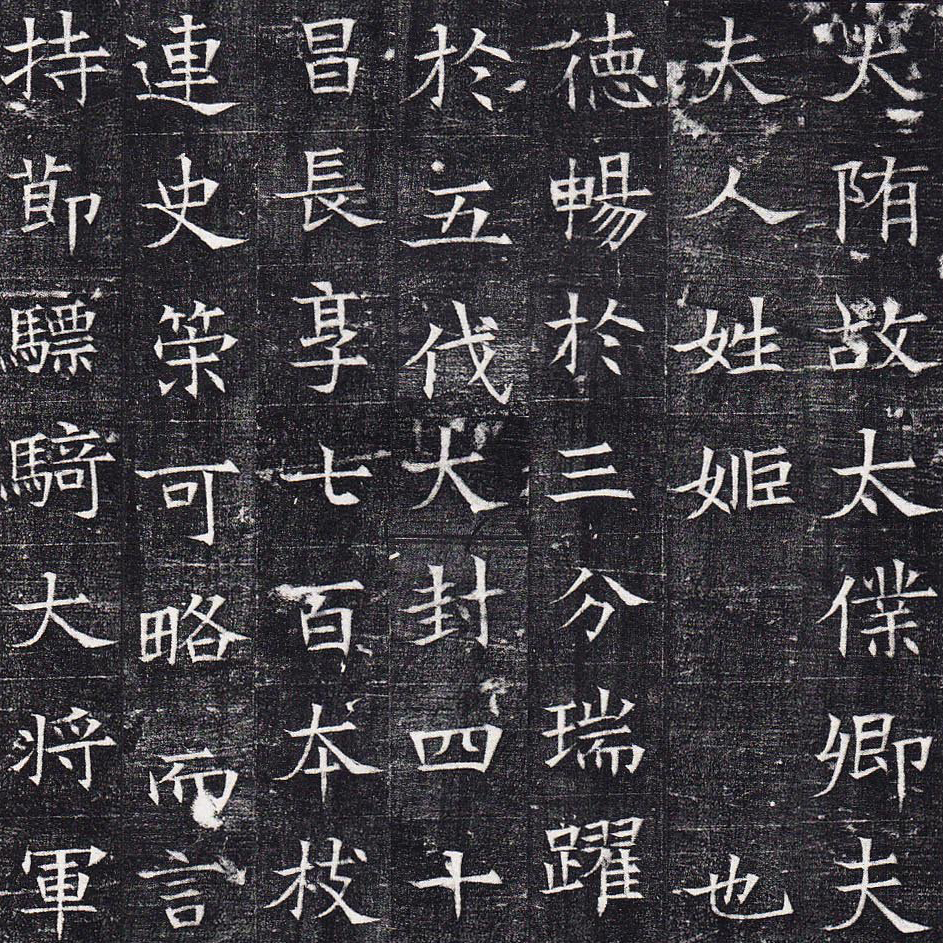 大隋故太僕卿夫
夫人姓姬也
德暢於三分瑞躍
於五伐大封四十
昌長享七百本枝
連史策可略而言
持節驃騎大將軍